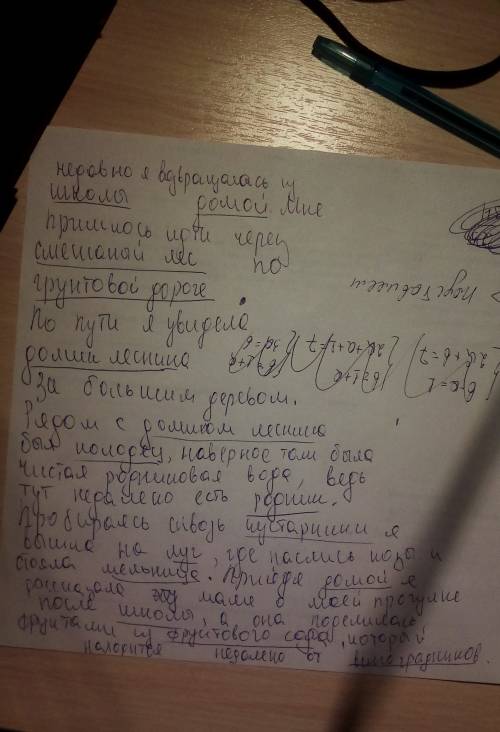 недавно я вдвращалась из
школы домой. Мне
пришлось идти через
смешаный лес по
грунтовой дороге.
По пути я увидела
домик лесника
за большим деревом.
Рядом с домиком лесника
был колодец, наверное там была
чистая родниковая вода, ведь
тут недалеко есть родник.
Пробираясь сквозь кустарники я
вышла на луг, где паслись коза и
стояла мельница. Прийдя домой я
рассказала маме о моей прогулке
после школы, а она поделилась
фруктами из фруктового сада, который
находится недалеко от виноградников.
Подставляем